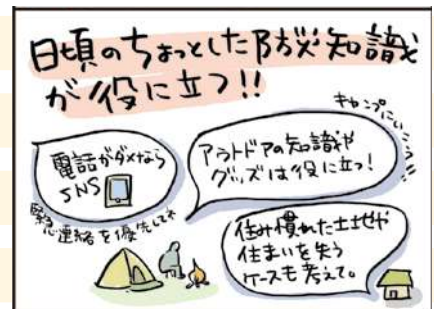 日頃のちょっとした防災知識
が役に立つ!!
キャンプにいこう!!
電話がダメなら
SNS
緊急連絡を優先してね
アウトドアの知識や
グッズは役に立つ!
住み慣れた土地や
住まいを失う
ケースも考えて。